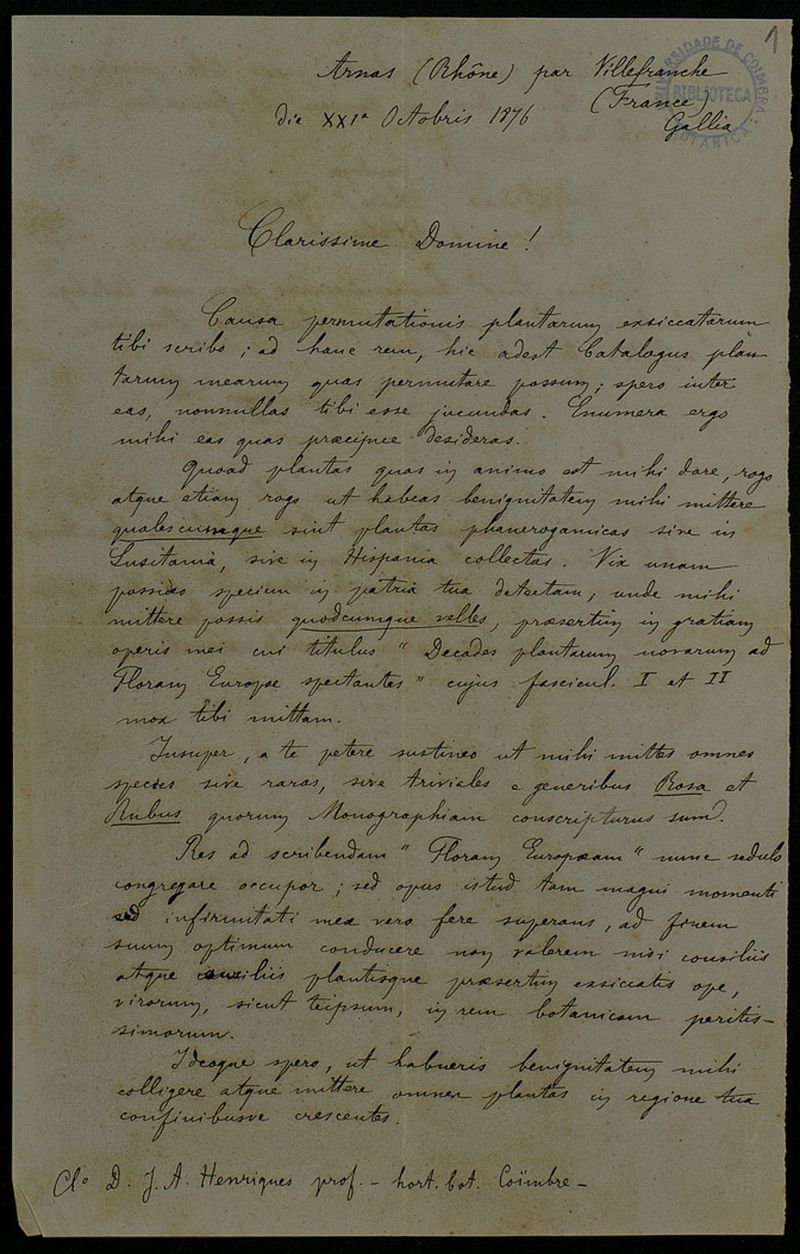 1
UNIVERSIDADE DE COIMBRA
BIBLIOTECA
BOTANICA
Arnas (Rhône) par Villefranche
(France)
die XXIª Octobris 1876
Gallia
Clarissime Domine !
Causa permutationis plantarum exsiccatarum
tibi scribo ; ad hanc rem, hic adest Catalogus plan-
tarum mearum quas permutare possum ; spero inter
eas, nonnullas tibi esse jucundas. Enumera ergo
mihi eas quas præcipue desideras.
Quoad plantas quas in animo est mihi dare, rogo
atque etiam rogo ut habeas benignitatem mihi mittere
qualescumque sint plantas phanerogamicas sive in
Lusitaniâ, sive in Hispania collectas. Vix unam
possideo speciem in patriâ tuâ detectam ; unde mihi
mittere possis quodcumque velles, præsertim in gratiam
operis mei cui titulus " Decades plantarum novarum ad
Floram Europæ spectantes " cujus fascicul. I et II
mox tibi mittam.
Insuper, a te petere sustineo ut mihi mittes omnes
species sive raras, sive triviales e generibus Rosa et
Rubus quorum Monographiam conscripturus sum.
Res ad scribendam " Floram Europæam " nunc sedulo
congregare occupor ; sed opus istud tam magni momenti
sed infirmitati meæ vero fere superans, ad finem
suum optimum conducere non valerem nisi consiliis
atque auxiliis plantisque præsertim exsiccatis ope,
virorum, sicut teipsum, in rem botanicam peritis-
simorum.
Ideoque spero, ut habueris benignitatem mihi
colligere atque mittere omnes plantas in regione tua
confinibusve crescentes.
Clº D. J. A. Henriques prof. - hort. bot. Coïmbre -